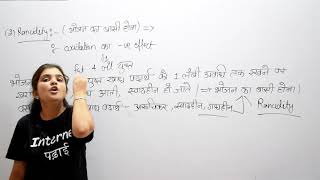 (3) Rancidity :- (भोजन का बासी होना) =>
{ oxidation का -ve effect
Fat & oil युक्त
भोजन
युक्त खाद्य पदार्थ को 1 लंबी अवधि तक रखने पर
आती, स्वादहीन हो जाते (=> भोजन का बासी होना)
पदार्थ - अरुचिकर, स्वादहीन, Rancidity
Internet
पढ़ाई